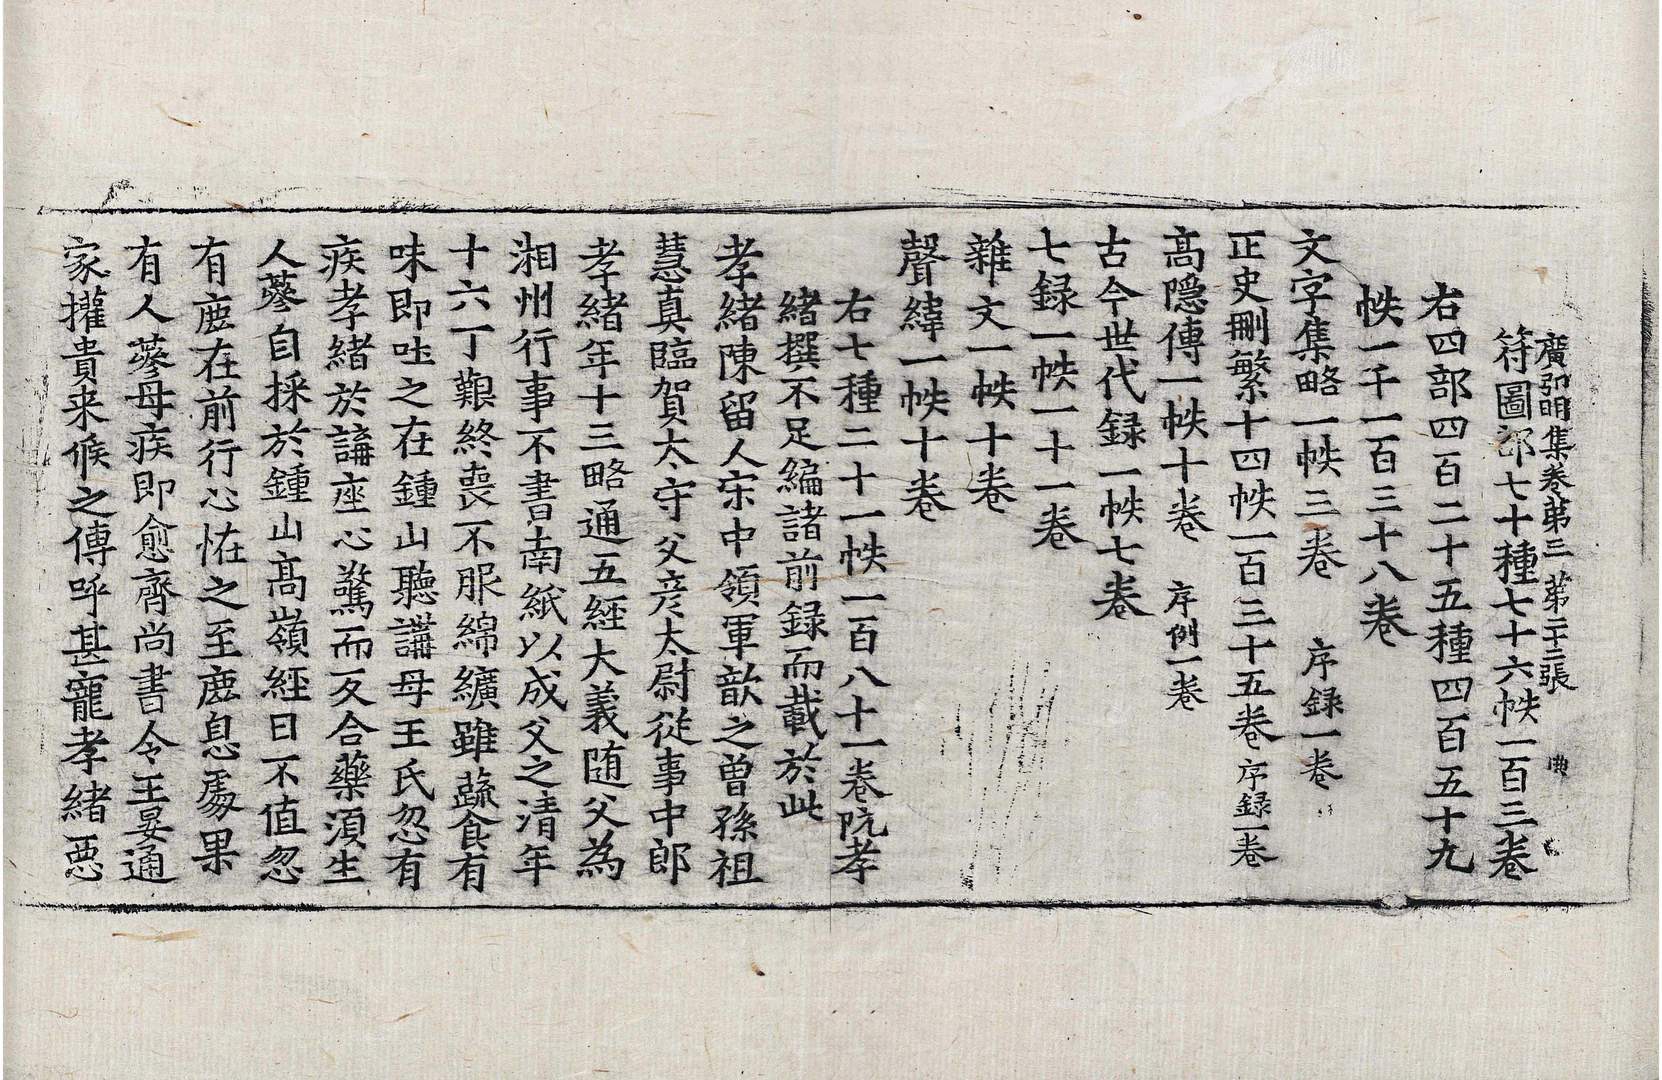 廣弘明集卷第三 第二十三張 典
符圖部七十種七十六帙一百三卷
右四部四百二十五種四百五十九
帙一千一百三十八卷
文字集略一帙三卷 序録一卷
正史刪繁十四帙一百三十五卷序録一卷
髙隱傳一帙十卷 序例一卷
古今世代録一帙七卷
七録一帙一十一卷
雜文一帙十卷
聲緯一帙十卷
右七種二十一帙一百八十一卷阮孝
緒撰不足編諸前録而載於此
孝緒陳留人宋中領軍歆之曾孫祖
慧真臨賀太守父彦太尉從事中郎
孝緒年十三略通五經大義随父為
湘州行事不書南紙以成父之清年
十六丁艱終喪不服綿纊雖蔬食有
味即吐之在鍾山聽講母王氏忽有
疾孝緒於講座心驚而反合藥須生
人蔘自採於鍾山髙嶺經日不值忽
有鹿在前行心恠之至鹿息處果
有人蔘母疾即愈齊尚書令王晏通
家權貴来候之傳呼甚寵孝緒惡